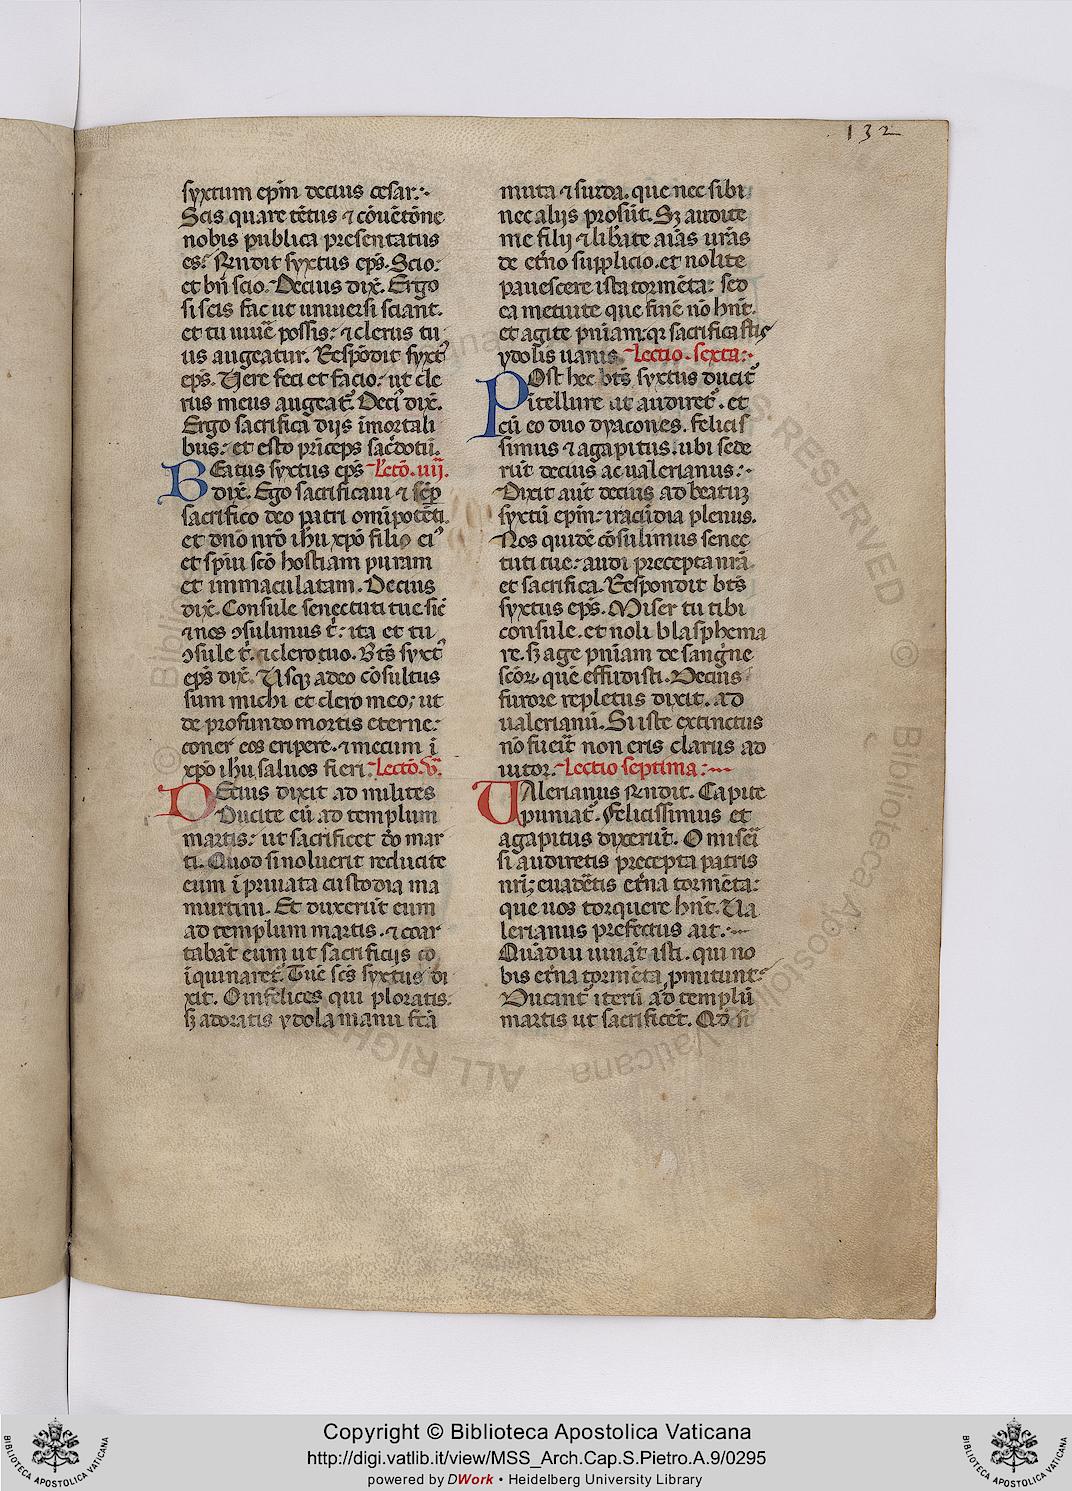 132
syxtum ep̄m decius cesar:·
Scis quare tētus ⁊ cōuētōne
nobis publica presentatus
es? Rn̄dit syxtus ep̄s. Scio:
et bn̄ scio. Decius dix̄. Ergo
si scis fac ut uniuersi sciant.
et tu uiuē possis: ⁊ clerus tu
us augeatur. Respōdit syxt᾽
ep̄s. Vere feci et facio: ut cle
rus meus augeat᷑. Deci᾽ dix̄.
Ergo sacrifica diis īmortali
bus: et esto prīceps sac̄dotū.
BEatus syxtus ep̄s Lectō. iiij.
dix̄. Ego sacrificaui ⁊ sēp
sacrifico deo patri omīpotēti
et dn̄o nr̄o ih̄u xp̄o filio ei᾽
et sp̄ui sc̄o hostiam puram
et immaculatam. Decius
dix̄. Consule senectuti tue sic̄
⁊ nos ꝯsulimus t̄: ita et tu
ꝯsule t̄. ⁊ clero tuo. Bt̄s syxt᾽
ep̄s dix̄. Usqꝫ adeo cōsultus
sum michi et clero meo: ut
de profundo mortis eterne:
coner eos eripere. ⁊ mecum ī
xp̄o ih̄u saluos fieri. Lectō. v̄.
DEcius dixit ad milites
Ducite eū ad templum
martis: ut sacrificet dō mar
ti. Quod si noluerit reducite
eum ī priuata custodia ma
murtini. Et duxerūt eum
ad templum martis. ⁊ coar
tabāt eum ut sacrificiis co
īquinaret᷑. Tūc sc̄s syxtus di
xit. O infelices qui ploratis:
sꝫ adoratis ydola manu fc̄a
muta ⁊ surda. que nec sibi
nec aliis prosūt. Sꝫ audite
me filij ⁊ lib̄ate aīas ur̄as
de et̄no supplicio. et nolite
pauescere ista tormēta: sed
ea metuite que finē nō hn̄t.
et agite pn̄iam: qr sacrificastis
ydolis uanis. Lectio. sexta:·
POst hec bt̄s syxtus ducit᷑
i tellure ut audiret᷑. et
cū eo duo dyacones. felicis
simus ⁊ agapitus. ubi sede
rūt decius ac ualerianus:·
Dixit aut̄ decius ad beatuꝫ
syxtū ep̄m: iracūdia plenus.
Nos quidē cōsulimus senec
tuti tue: audi precepta nr̄a
et sacrifica. Respondit bt̄s
syxtus ep̄s. Miser tu tibi
consule. et noli blasphema
re. sꝫ age pn̄iam de sangīne
sc̄oꝝ quē effudisti. Decius
furore repletus dixit. ad
ualerianū. Si iste extinctus
nō fuerit non eris clarus ad
iutor. Lectio septima:·
VAlerianus rn̄dit. Capite
puniat᷑. Felicissimus et
agapitus dixerūt. O miseri
si audiretis precepta patris
nr̄i: euadētis et̄na tormēta:
que uos torquere hn̄t. Va
lerianus prefectus ait:·
Quādiu uiuāt isti. qui no
bis et̄na tormēta ꝓmitunt:
Ducant᷑ iterū ad templū
martis ut sacrificēt. Qd̄ si
Copyright © Biblioteca Apostolica Vaticana
http://digi.vatlib.it/view/MSS_Arch.Cap.S.Pietro.A.9/0295
powered by DWork • Heidelberg University Library
BIBLIOTECA APOSTOLICA VATICANA
BIBLIOTECA APOSTOLICA VATICANA